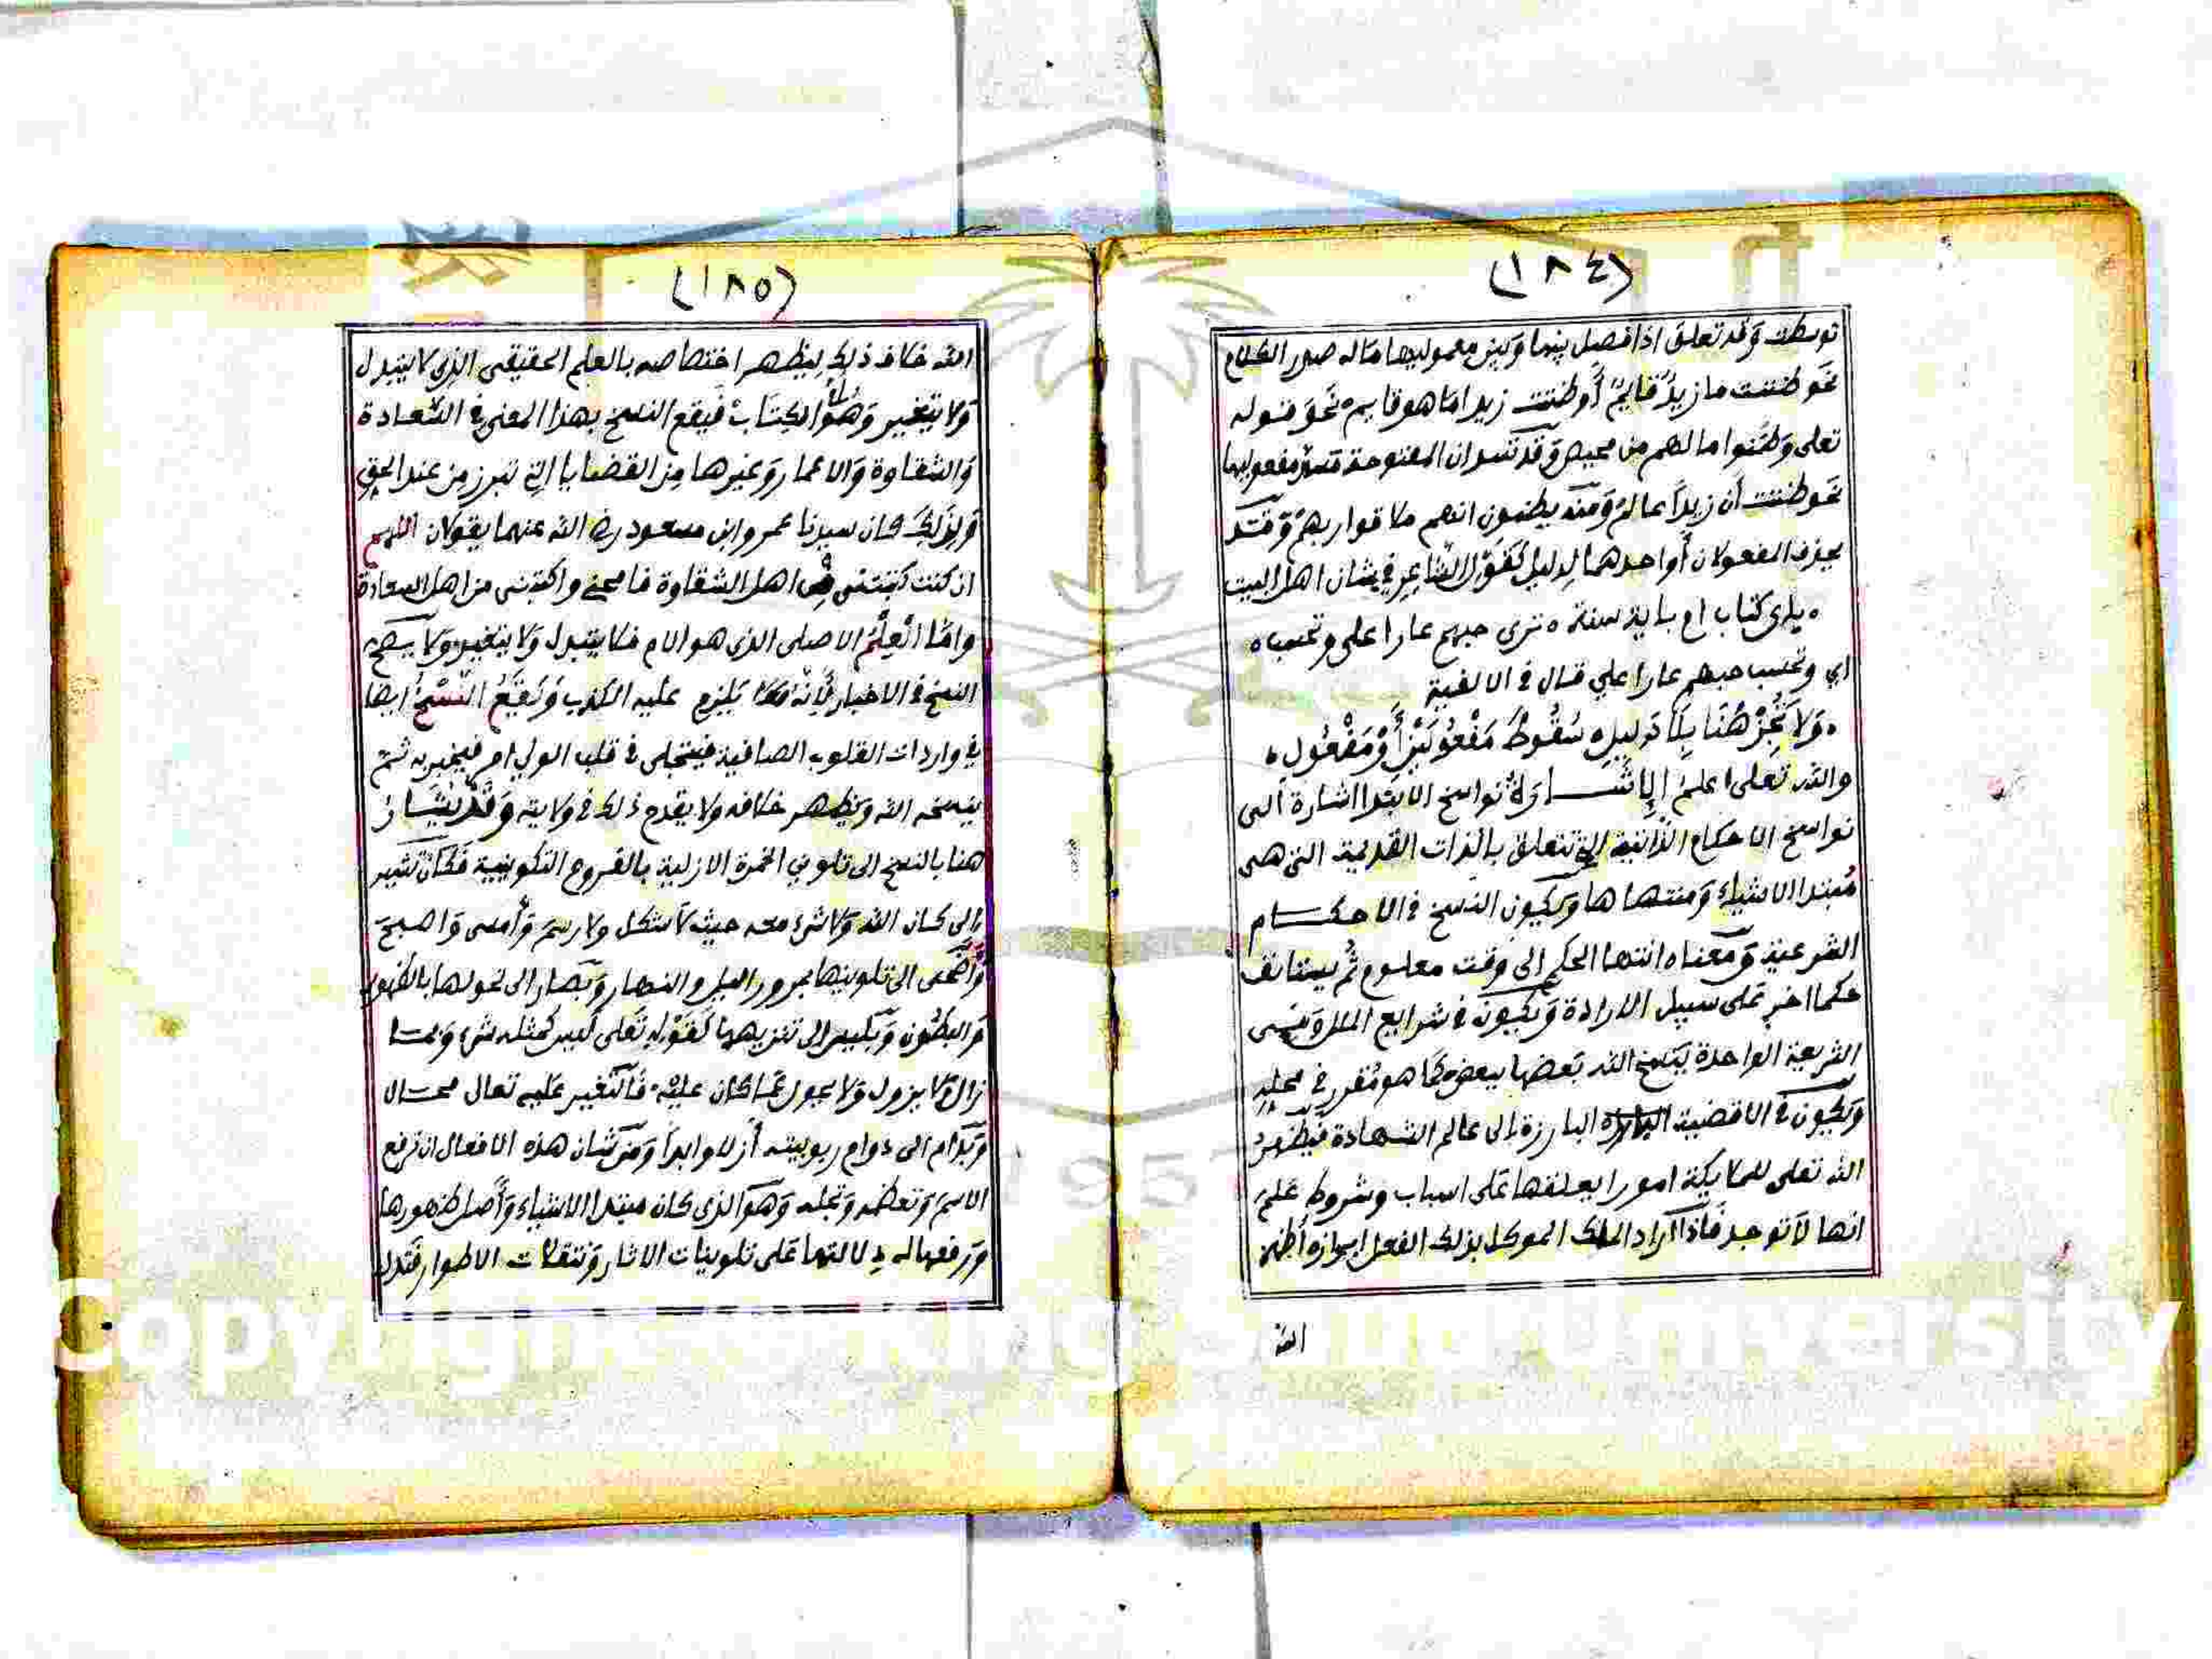 (١٨٤)
توسطت وقد تعلق اذا فصل بينها وبين معموليها ماله صدر الكلام
نحو ظننت ما زيدٌ قايمٌ أو ظننت زيدا ما هو قايم نحو قوله
تعلى وظنوا ما لهم من محيص وقد تسد ان المفتوحة مسد مفعوليها
نحو ظننت أن زيداً عالمٌ ومنه يظنون انهم ملاقوا ربهم وقد
يحذف المفعولان أو احدهما لدليل كقول الشاعر في شان اهل البيت
باي كتاب ام باية سنة ه ترى حبهم عارا على وتحسب ه
اي وتحسب حبهم عارا علي قال في الالفية
ه ولا تُجِزْ هُنَا بِلَا دَلِيلِ سُقُوطَ مَفْعُولَيْنِ أَوْ مَفْعُولِ ه
والله تعلى اعلم الإشارة نواسخ الابتدا اشارة الى
نواسخ الاحكام الذاتية التي تتعلق بالذات القديمة التي هي
مُبتدا الاشياء ومنتهاها ويكون النسخ في الاحكام
الشرعية ومعناه انتها الحكم الى وقت معلوم ثم يستانف
حكما اخر على سبيل الارادة ويكون في شرايع الملل وفي
الشريعة الواحدة ينسخ الله بعضها ببعض كما هو مقرر في محله
ويكون في الاقضية البارزة الى عالم الشهادة فيظهر
الله تعلى للملايكة امورا يعلقها على اسباب وشروط علم
انها لا توجد فاذا اراد الملك الموكل بذلك الفعل ابرازه أظهر
الله
(١٨٥)
الله خلاف ذلك ليظهر اختصاصه بالعلم الحقيقى الذي لا يتبدل
ولا يتغير وهو أم الكتاب فيقع النسخ بهذا المعنى في السعادة
والشقاوة والاعمار وغيرها من القضايا التي تبرز من عند الحق
ولذلك كان سيدنا عمر وابن مسعود رضي الله عنهما يقولان اللهم
ان كنت كتبتني في اهل الشقاوة فامحني واكتبني من اهل السعادة
واما العلم الاصلى الذي هو الام فلا يتبدل ولا يتغير ولا يصح
النسخ في الاخبار لأنه يلزم عليه الكذب ويقع النسخ ايضا
في واردات القلوب الصافية فيتجلى في قلب الولي امر فيخبر به ثم
ينسخه الله ويظهر خلافه ولا يقدح ذلك في ولايته وقد يشار
هنا بالنسخ الى تلوين الخمرة الازلية بالفروع التكوينية فكان تشير
الى كان الله ولا شيء معه حيث لا شكل ولا رسم وأمسى واصبح
وأضحى الى تلوينها بمرور الليل والنهار وصار الى تحولها بالظهور
والبطون وليس الى تنزيهها كقوله تعلى ليس كمثله شيء وما
زال لا يزول ولا يحول عما كان عليه فالتغير عليه تعال محال
ومادام الى دوام ربوبيته أزلا وابداً ومن شان هذه الافعال ان ترفع
الاسم وتعظمه وتجله وهو الذي كان مبتدا الاشياء وأصل ظهورها
ورفعها له دلالتها على تلوينات الاثار وتنقلات الاطوار فتدل
Copyright © King Saud University
1957